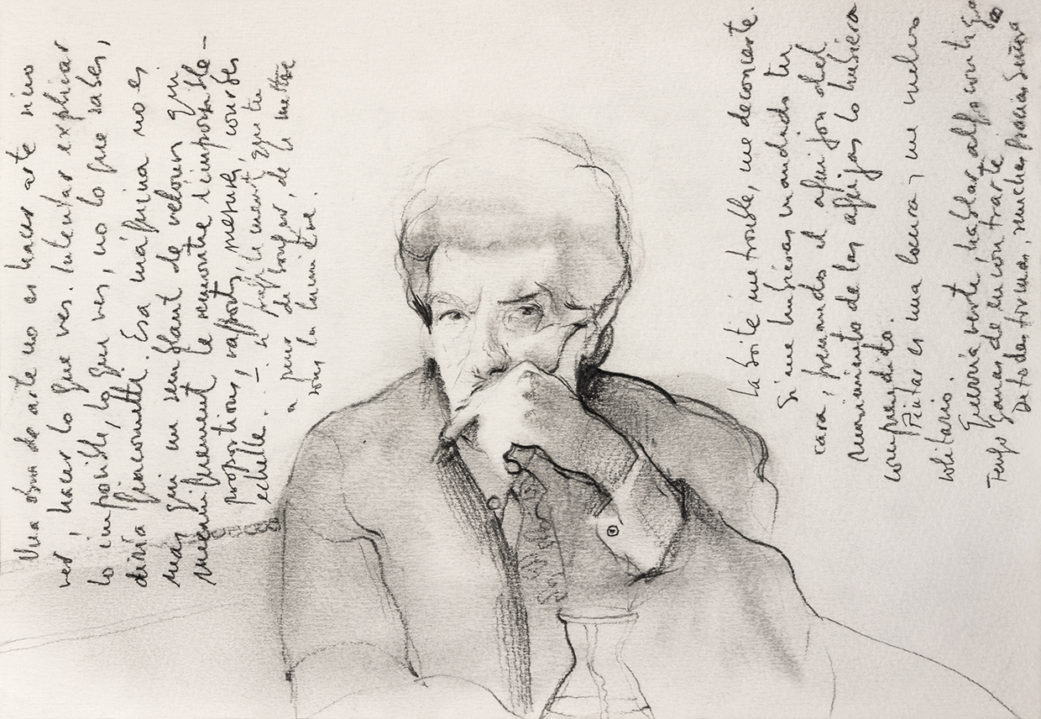 Una obra de arte no es hacer arte sino
ver, hacer lo que ves. Intentar explicar
lo imposible, lo que ves, no lo que sabes,
diría Giacometti. Esa máquina no es
más qui un semblant de velours qui
te remontre l'impossible-
proportions, rapports, mesures, courbes
echelle. - que tu
a peur de bouger, de la mettre
sous la lumière.
La boîte me trouble, me deconcerte.
Si me hubieras mandado tu
cara, pensando el aguijon del
movimiento de las agujas lo hubiera
comprendido.
Pintar es una locura y me vuelvo
solitario.
Querría verte, hablar algo contigo
Tengo ganas de encontrarte
De todas formas, muchas gracias Señora